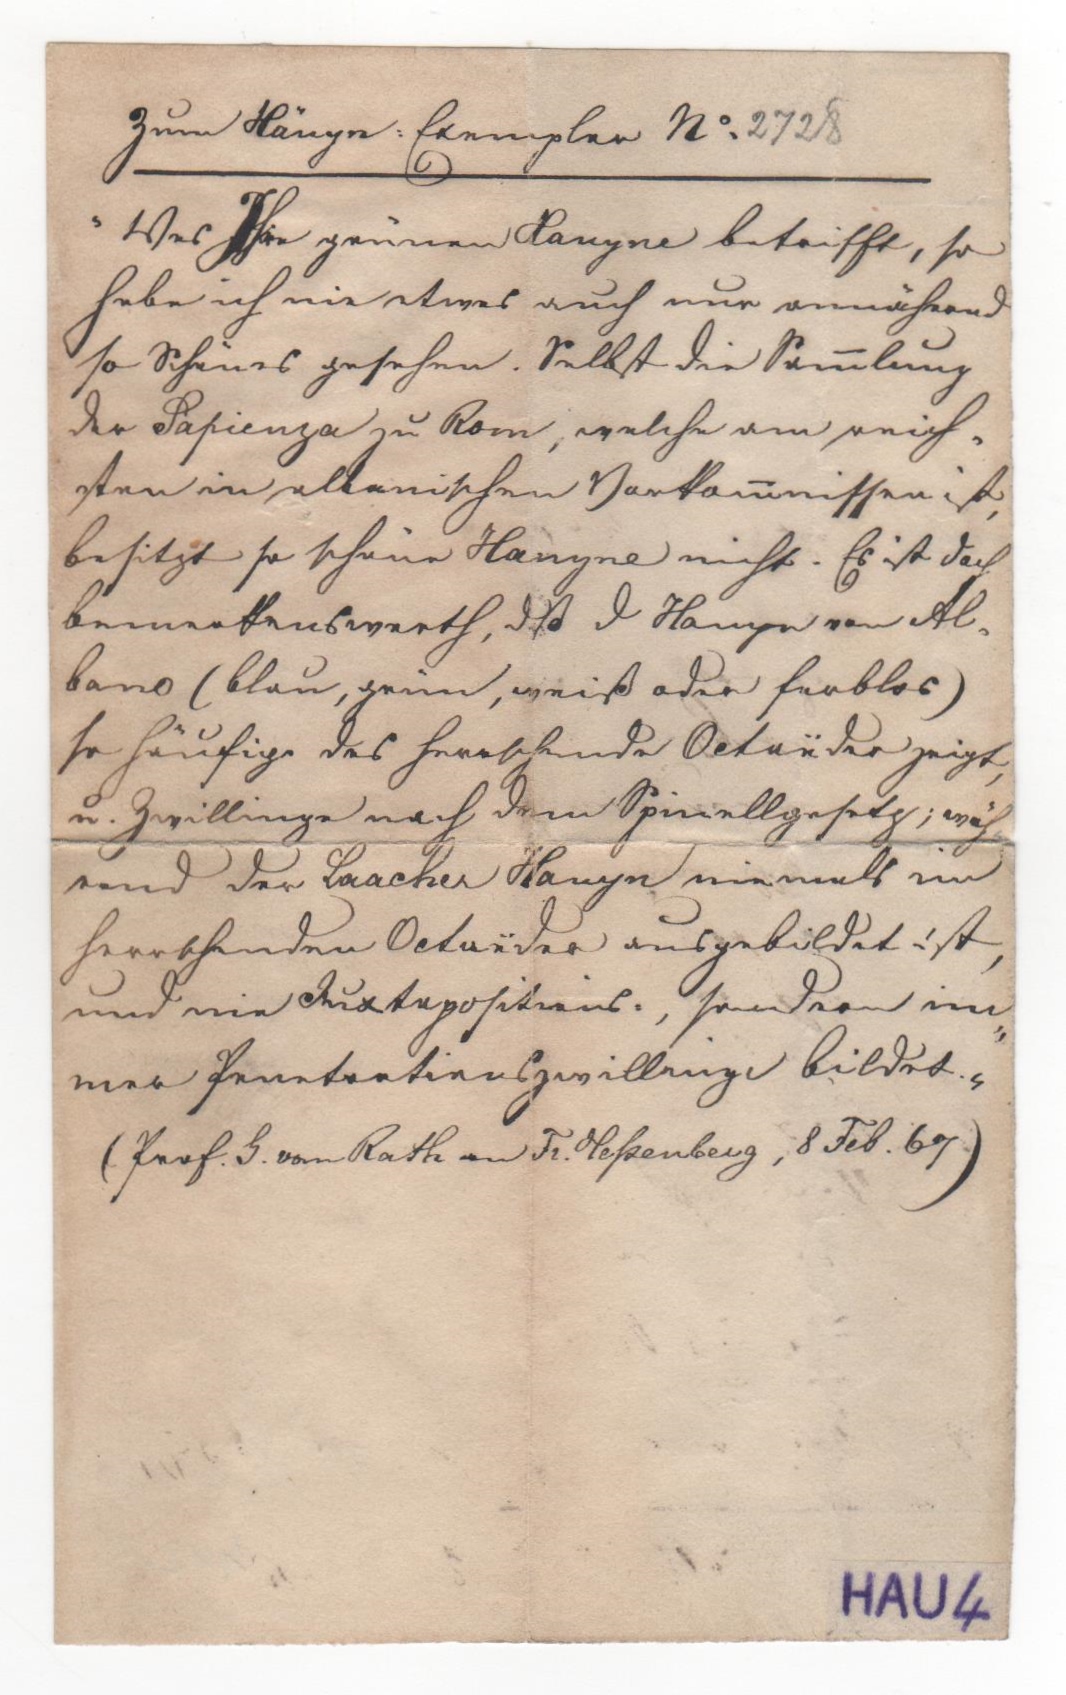 Zum Häuyn-Exemplar No. 2728
"Was Ihre grünen Hauyne betrifft, so
habe ich nie etwas auch nur annähernd
so Schönes gesehen. Selbst die Sam̅lung
der Sapienza zu Rom, welche am reich-
sten in albanischen Vorkom̅nissen ist,
besitzt so schöne Hauyne nicht. Es ist doch
bemerkenswerth, dß d Hauyn von Al-
bano (blau, grün, weiß oder farblos)
so häufig das herrschende Octaëder zeigt,
u. Zwillinge nach dem Spinellgesetz; wäh
rend der Laacher Hauyn niemals im
herrschenden Octaëder ausgebildet ist,
und nie Juxtapositions-, sondern im-
mer Penetrationszwillinge bildet."
(Prof. G. vom Rath an Fr. Heßenberg, 8 Feb. 67)
HAU4